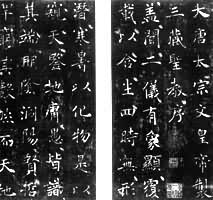 大唐太宗文皇帝製
三藏聖教序
蓋聞二儀有象顯覆
載以含生四時無形
潛寒暑以化物是以
窺天鑑地庸愚皆識
其端明陰洞陽賢哲
罕窮其數然而天地